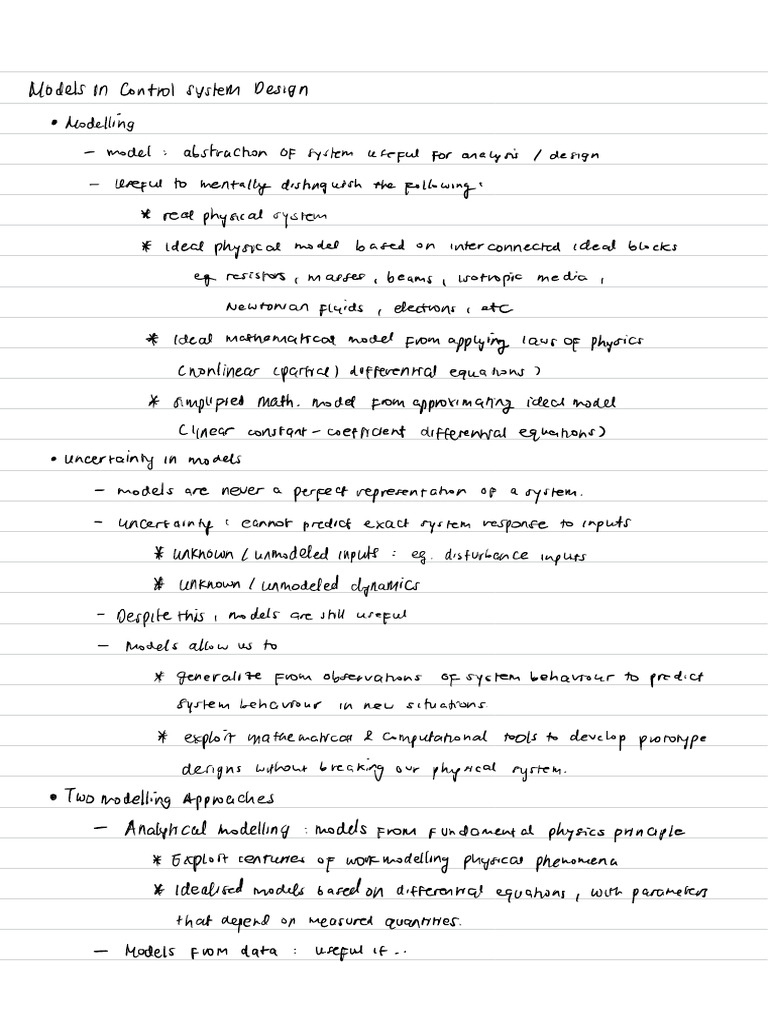 Models in Control System Design
• Modelling
– model : abstraction of system useful for analysis / design
– Useful to mentally distinguish the following:
* real physical system
* ideal physical model based on interconnected ideal blocks
eg resistors, masses, beams, isotropic media,
Newtonian fluids, electrons, etc
* Ideal mathematical model from applying laws of physics
(nonlinear (partial) differential equations)
* simplified math. model from approximating ideal model
(linear constant-coefficient differential equations)
• Uncertainty in models
– models are never a perfect representation of a system.
– Uncertainty : cannot predict exact system response to inputs
* unknown / unmodeled inputs : eg. disturbance inputs
* unknown / unmodeled dynamics
– Despite this, models are still useful
– Models allow us to
* generalize from observations of system behaviour to predict
system behaviour in new situations.
* exploit mathematical & computational tools to develop prototype
designs without breaking our physical system.
• Two modelling Approaches
– Analytical modelling : models from fundamental physics principle
* Exploit centuries of work modelling physical phenomena
* Idealised models based on differential equations, with parameters
that depend on measured quantities.
– Models from data : useful if ..